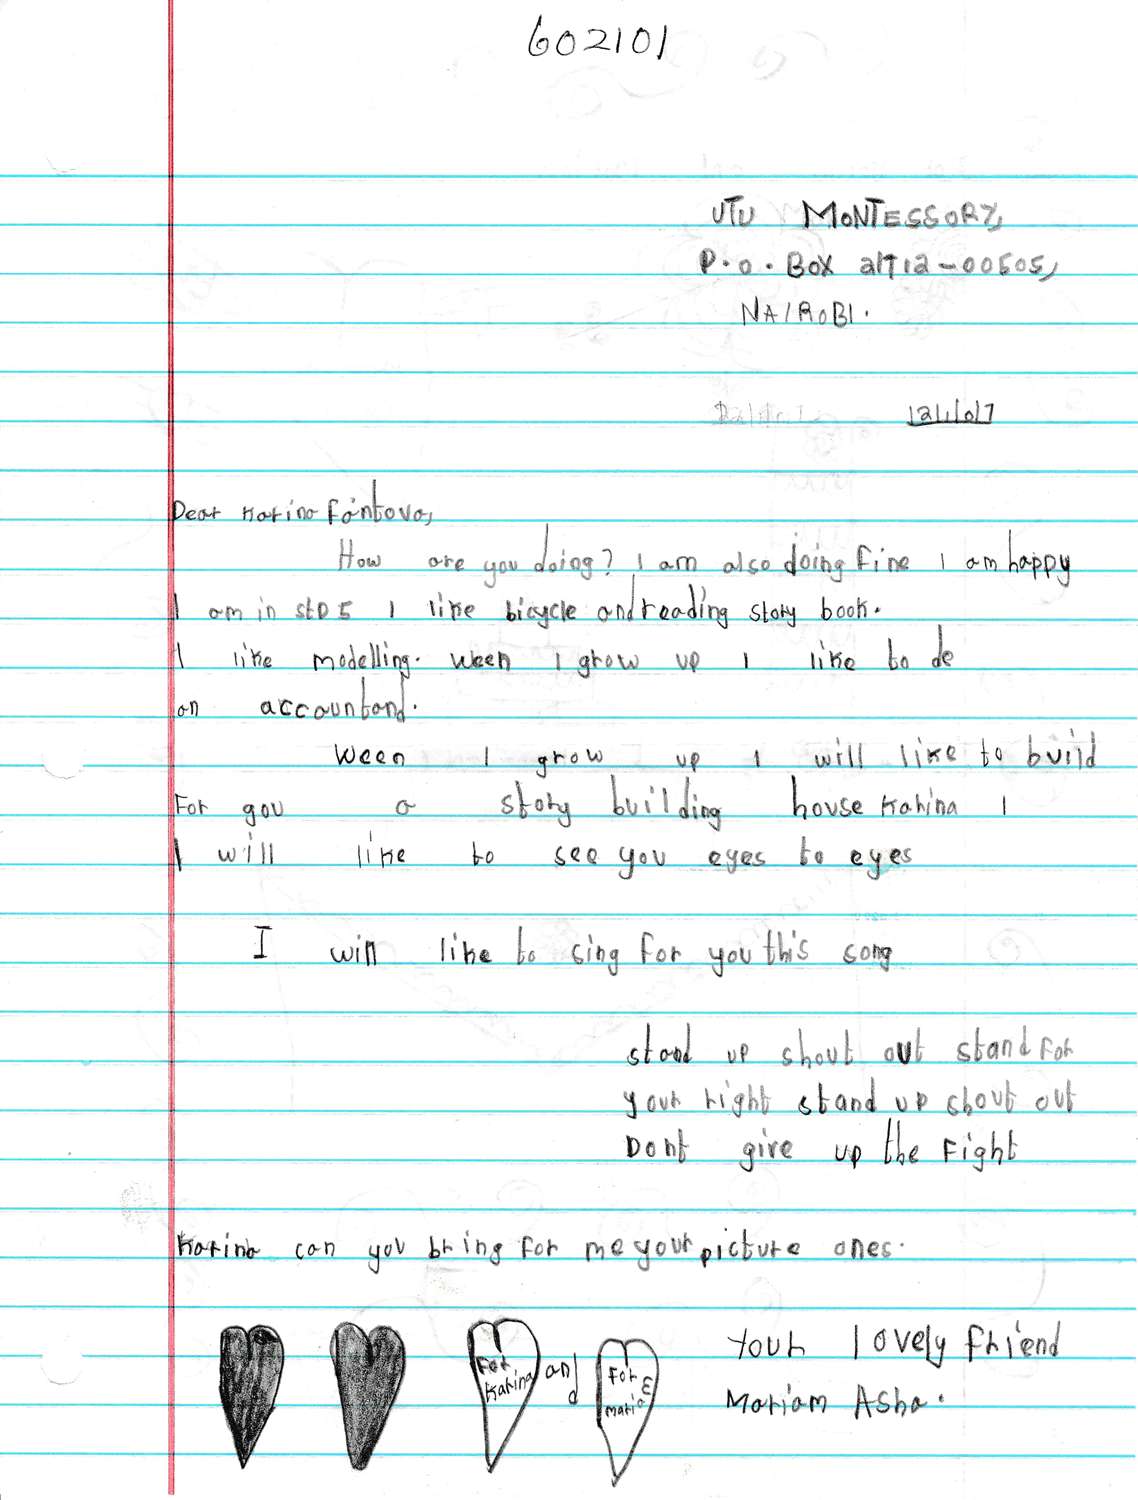 602101
UTU MONTESSORY,
P.O. BOX 21712-00505,
NAIROBI.
12/1/07
Dear Karina Fantova,
How are you doing? I am also doing fine I am happy
I am in STD 5 I like bicycle and reading story book.
I like modelling. Ween I grow up I like to de
an accountand.
Ween I grow up I will like to build
For you a story building house Karina I
I will like to see you eyes to eyes
I will like to sing for you this song
stand up shout out stand for
your right stand up shout out
Dont give up the Fight
Karina can you bring for me your picture ones.
For Karina and For Maria
Your lovely friend
Mariam Asha.